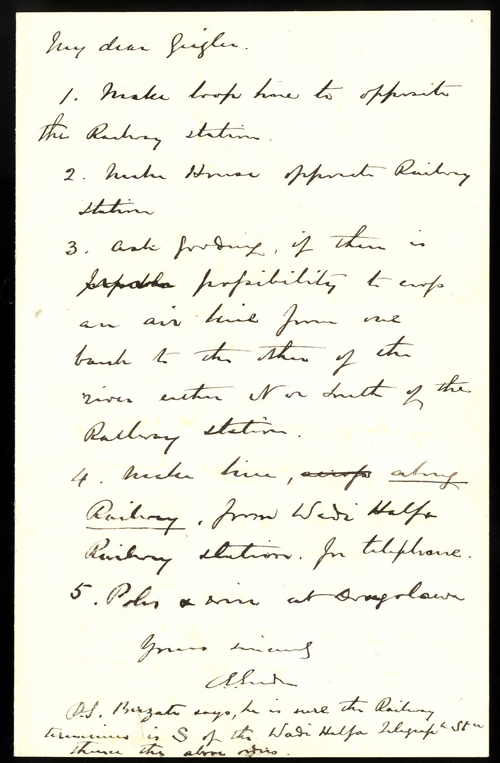 My dear Giegler.
1. Make loop line to opposite
the Railway station.
2. Make House opposite Railway
station
3. Ask Gooding, if there is
possibility to cross
an air line from one
bank to the other of the
river either N or South of the
Railway station.
4. Make line, across along
Railway, from Wadi Halfa
Railway station. for telephone.
5. Poles & wire at Dongolawe
Yours sincerely
P.S. Berzati says, he is sure the Railway
terminus is S of the Wadi Halfa Telegraph Stn
thence the above orders.